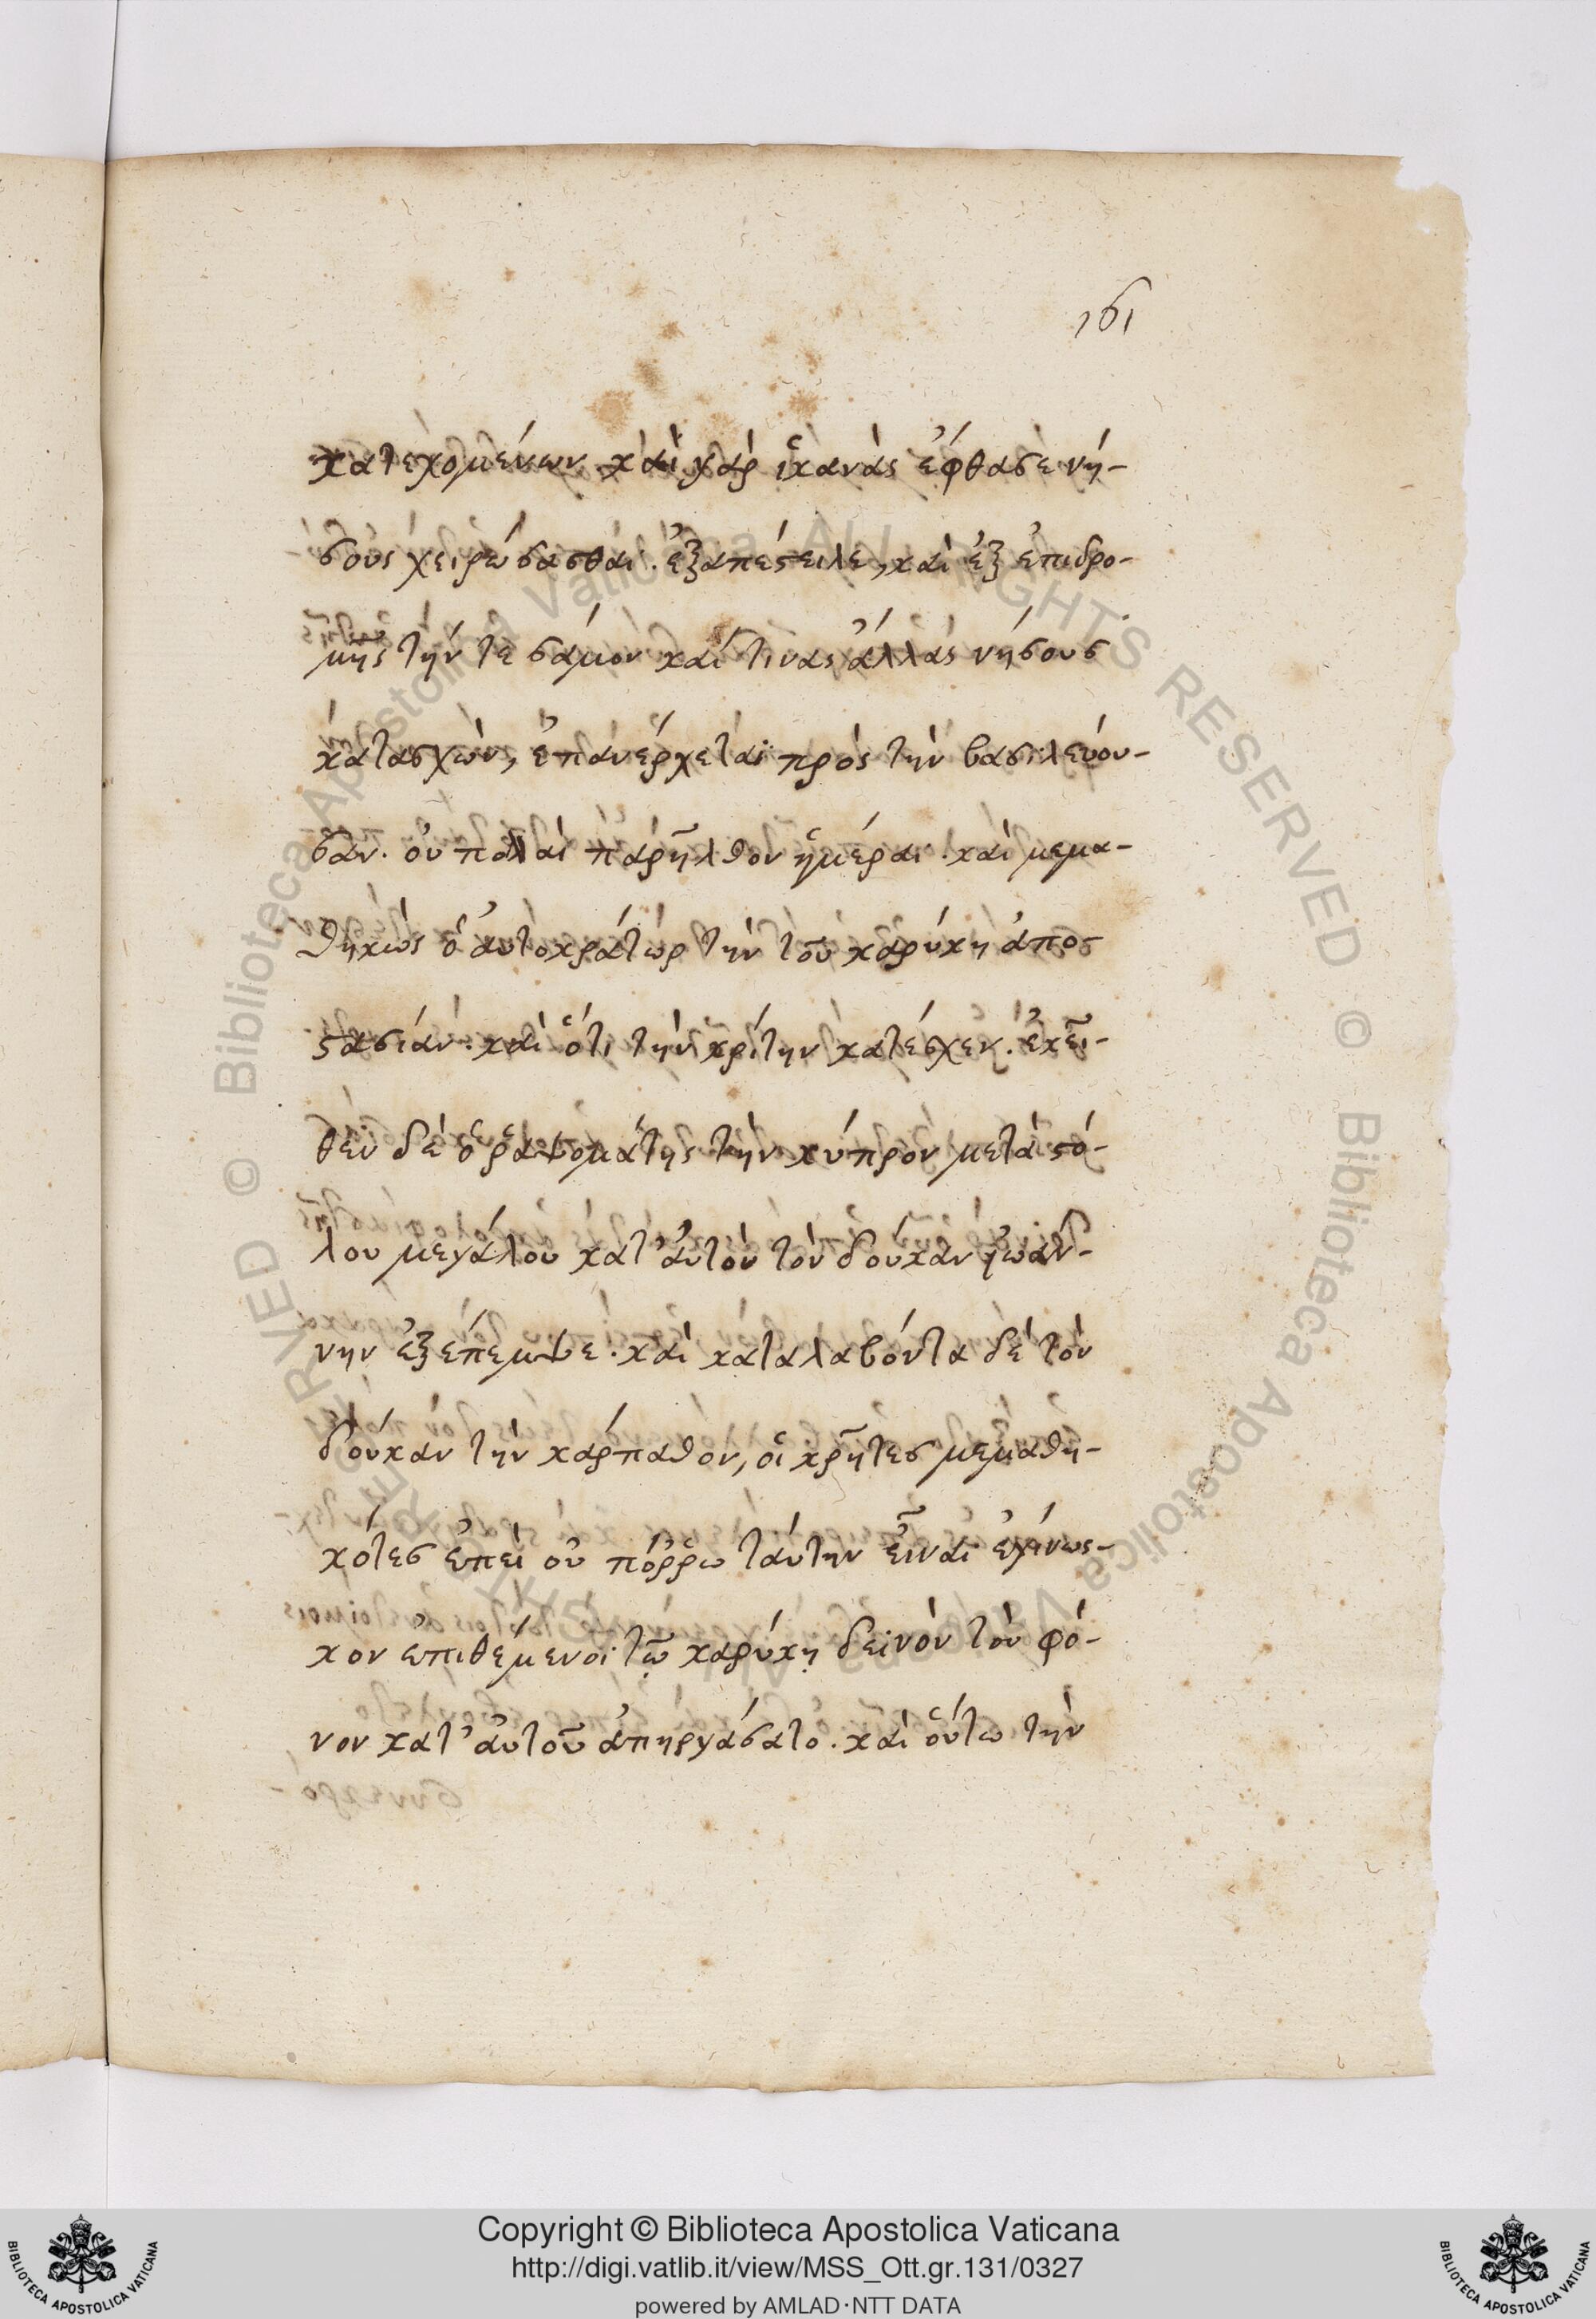 161
κατεχομένων καὶ γὰρ ἱκανὰς ἔφθασε νή-
σους χειρώσασθαι. ἐξαπέστειλε, καὶ ἐξ ἐπιδρο-
μῆς τήν τε σάμον καί τινας ἄλλας νήσους
κατασχὼν, ἐπανέρχεται πρὸς τὴν βασιλεύου-
σαν. οὐ παλαὶ παρῆλθον ἡμέραι. καὶ μεμα-
θηκὼς ὁ αὐτοκράτωρ τὴν τοῦ καρύκη ἀπο-
στασίαν. καὶ ὅτι τὴν κρίτην κατέσχεν. ἐκεῖ-
θεν δὲ ὁ ῥαψομάτης τὴν κύπρον μετὰ στό-
λου μεγάλου κατ' αὐτὸν τὸν δούκαν ἰωάν-
νην ἐξέπεμψε. καὶ καταλαβόντα δὲ τὸν
δούκαν τὴν κάρπαθον, οἱ κρῆτες μεμαθη-
κότες ἐπεὶ οὐ πόρρω ταύτην εἶναι ἐγίνωσ-
κον ἐπιθέμενοι τῷ καρύκῃ δεινὸν τὸν φό-
νον κατ' αὐτοῦ ἀπηργάσατο. καὶ οὕτω τὴν
Copyright © Biblioteca Apostolica Vaticana
http://digi.vatlib.it/view/MSS_Ott.gr.131/0327
powered by AMLAD·NTT DATA
BIBLIOTECA APOSTOLICA VATICANA
BIBLIOTECA APOSTOLICA VATICANA